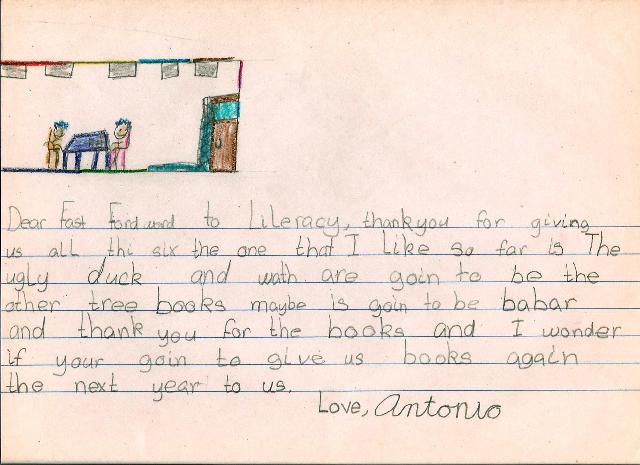 Dear Fast Ford word to Lileracy, thankyou for giving
us all thi six the one that I Like so far is The
ugly duck and wath are goin to be the
other tree books maybe is goin to be babar
and thank you for the books and I wonder
if your goin to give us books again
the next year to us.
Love, Antonio